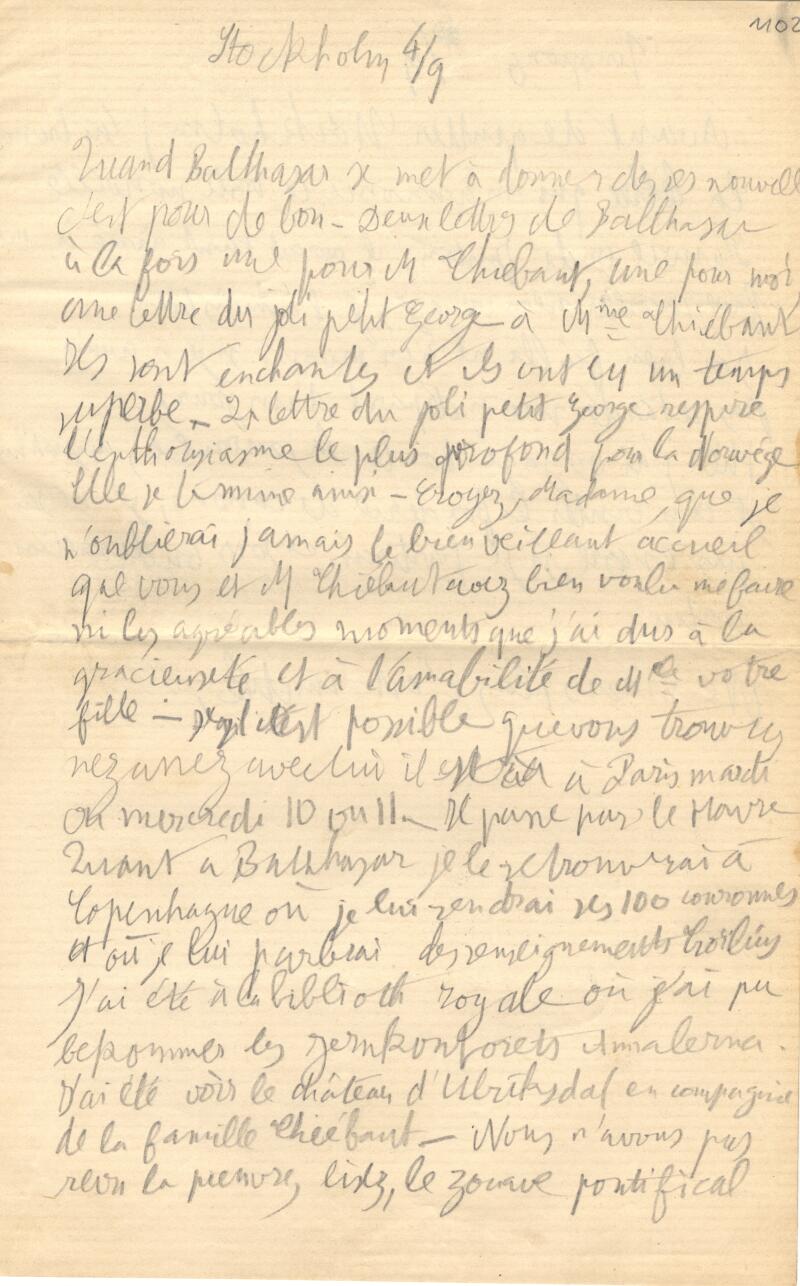 1102
Stockholm 4/9
Quand Balthasar se met à donner de ses nouvell
c'est pour de bon - Deux lettres de Balthasar
à la fois une pour M Thiébaut, une pour moi
une lettre du joli petit George à Mme Thiébaut
Ils sont enchantés et ils ont eu un temps
superbe - La lettre du joli petit George respire
l'enthousiasme le plus profond pour la Norvège
Elle se termine ainsi - Croyez, Madame, que je
n'oublierai jamais le bienveillant accueil
que vous et M Thiébaut avez bien voulu me faire
ni les agréables moments que j'ai dus à la
gracieuseté et à l'amabilité de Mlle votre
fille - est possible que vous trouviez
nez à nez avec lui il à Paris mardi
ou mercredi 10 ou 11 - Il passe par le Havre
Quant à Balthazar je le retrouverai à
Copenhague où je lui rendrai ses 100 couronnes
et où je lui parlerai des renseignements
J'ai été à la biblioth royale où j'ai pu
bekommer les Jernkontorets Annalerna.
J'ai été voir le château d'Ulriksdal en compagnie
de la famille Thiébaut - Nous n'avons pas
revu la pieuvre, le zouave pontifical